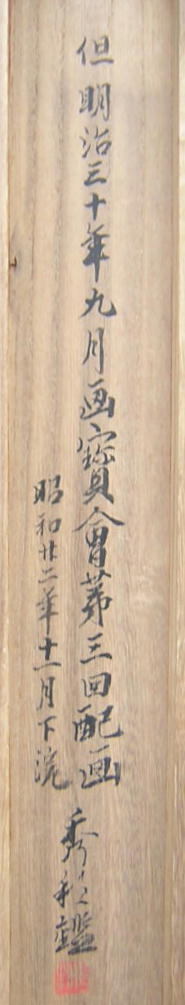 但明治三十年九月画寳會第三回配画
昭和廿二年十一月下浣
秀和鑑